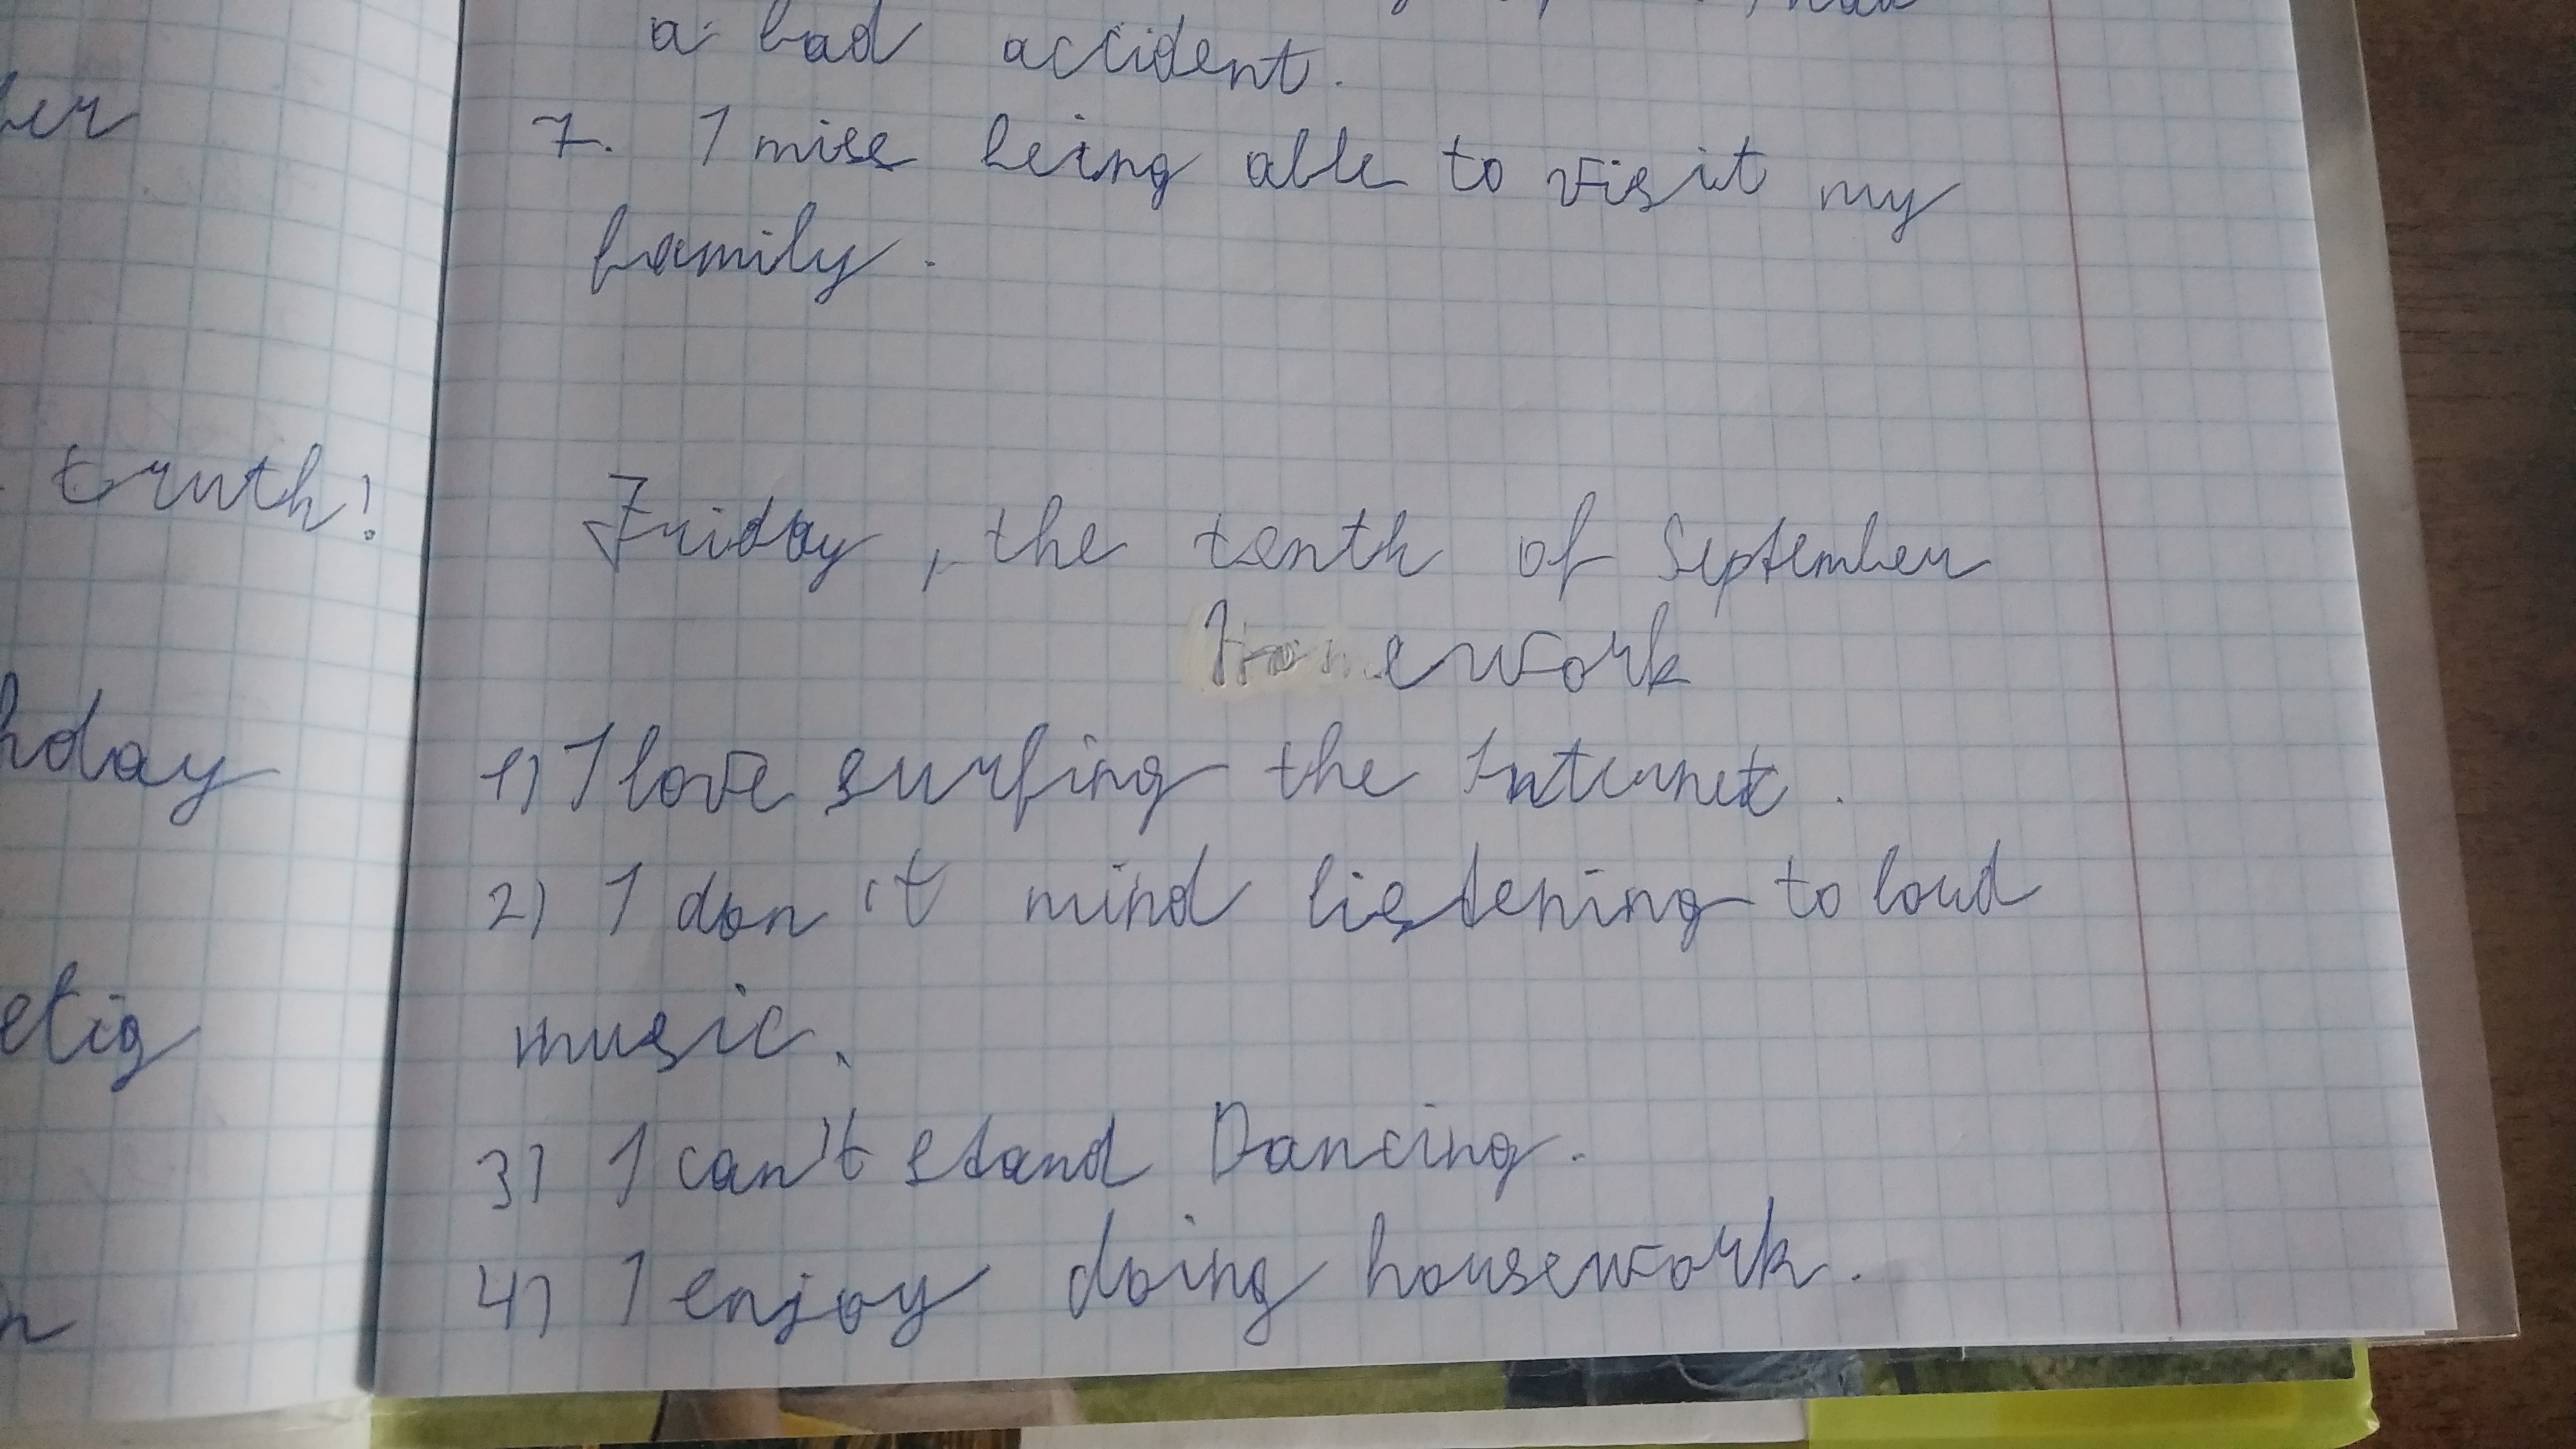 truth!
a bad accident.
7. I miss being able to visit my
family.
Friday, the tenth of September
Homework
1) I love surfing the Internet.
2) I don't mind listening to loud
music.
3) I can't stand Dancing.
4) I enjoy doing housework.